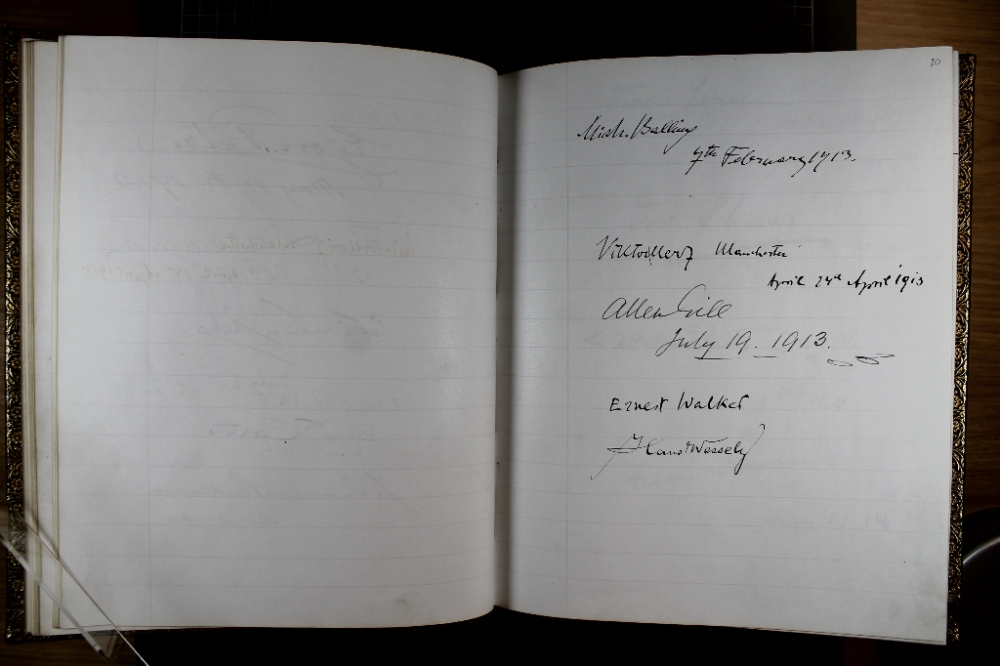 20
Mich. Balling
7th February 1913.
Manchester
April 24th April 1913
Allen Gill
July 19. 1913.
Ernest Walker
Hans Wessely